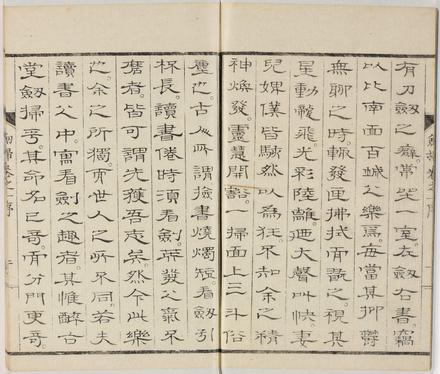 有刀劔之癖。常坐一室。左劔右書。竊
以比南面百城之樂焉。每當其抑鬱
無聊之時。輙發匣拂拭而翫之。視其
星動龍飛。光彩陸離。廼大聲叫快。妻
兒婢僕皆駭然以為狂。不知余之精
神煥發。靈慧開豁。一掃面上三斗俗
塵也。古人所謂撿書燒燭短。看劔引
杯長。讀書倦時須看劔。英發之氣不
磨者。皆可謂先獲吾志矣。然今此樂
也。余之所獨。而世人之所不同。若夫
讀書之中。寓看劔之趣者。其惟醉古
堂劔掃乎。其命名已奇。而分門更奇。